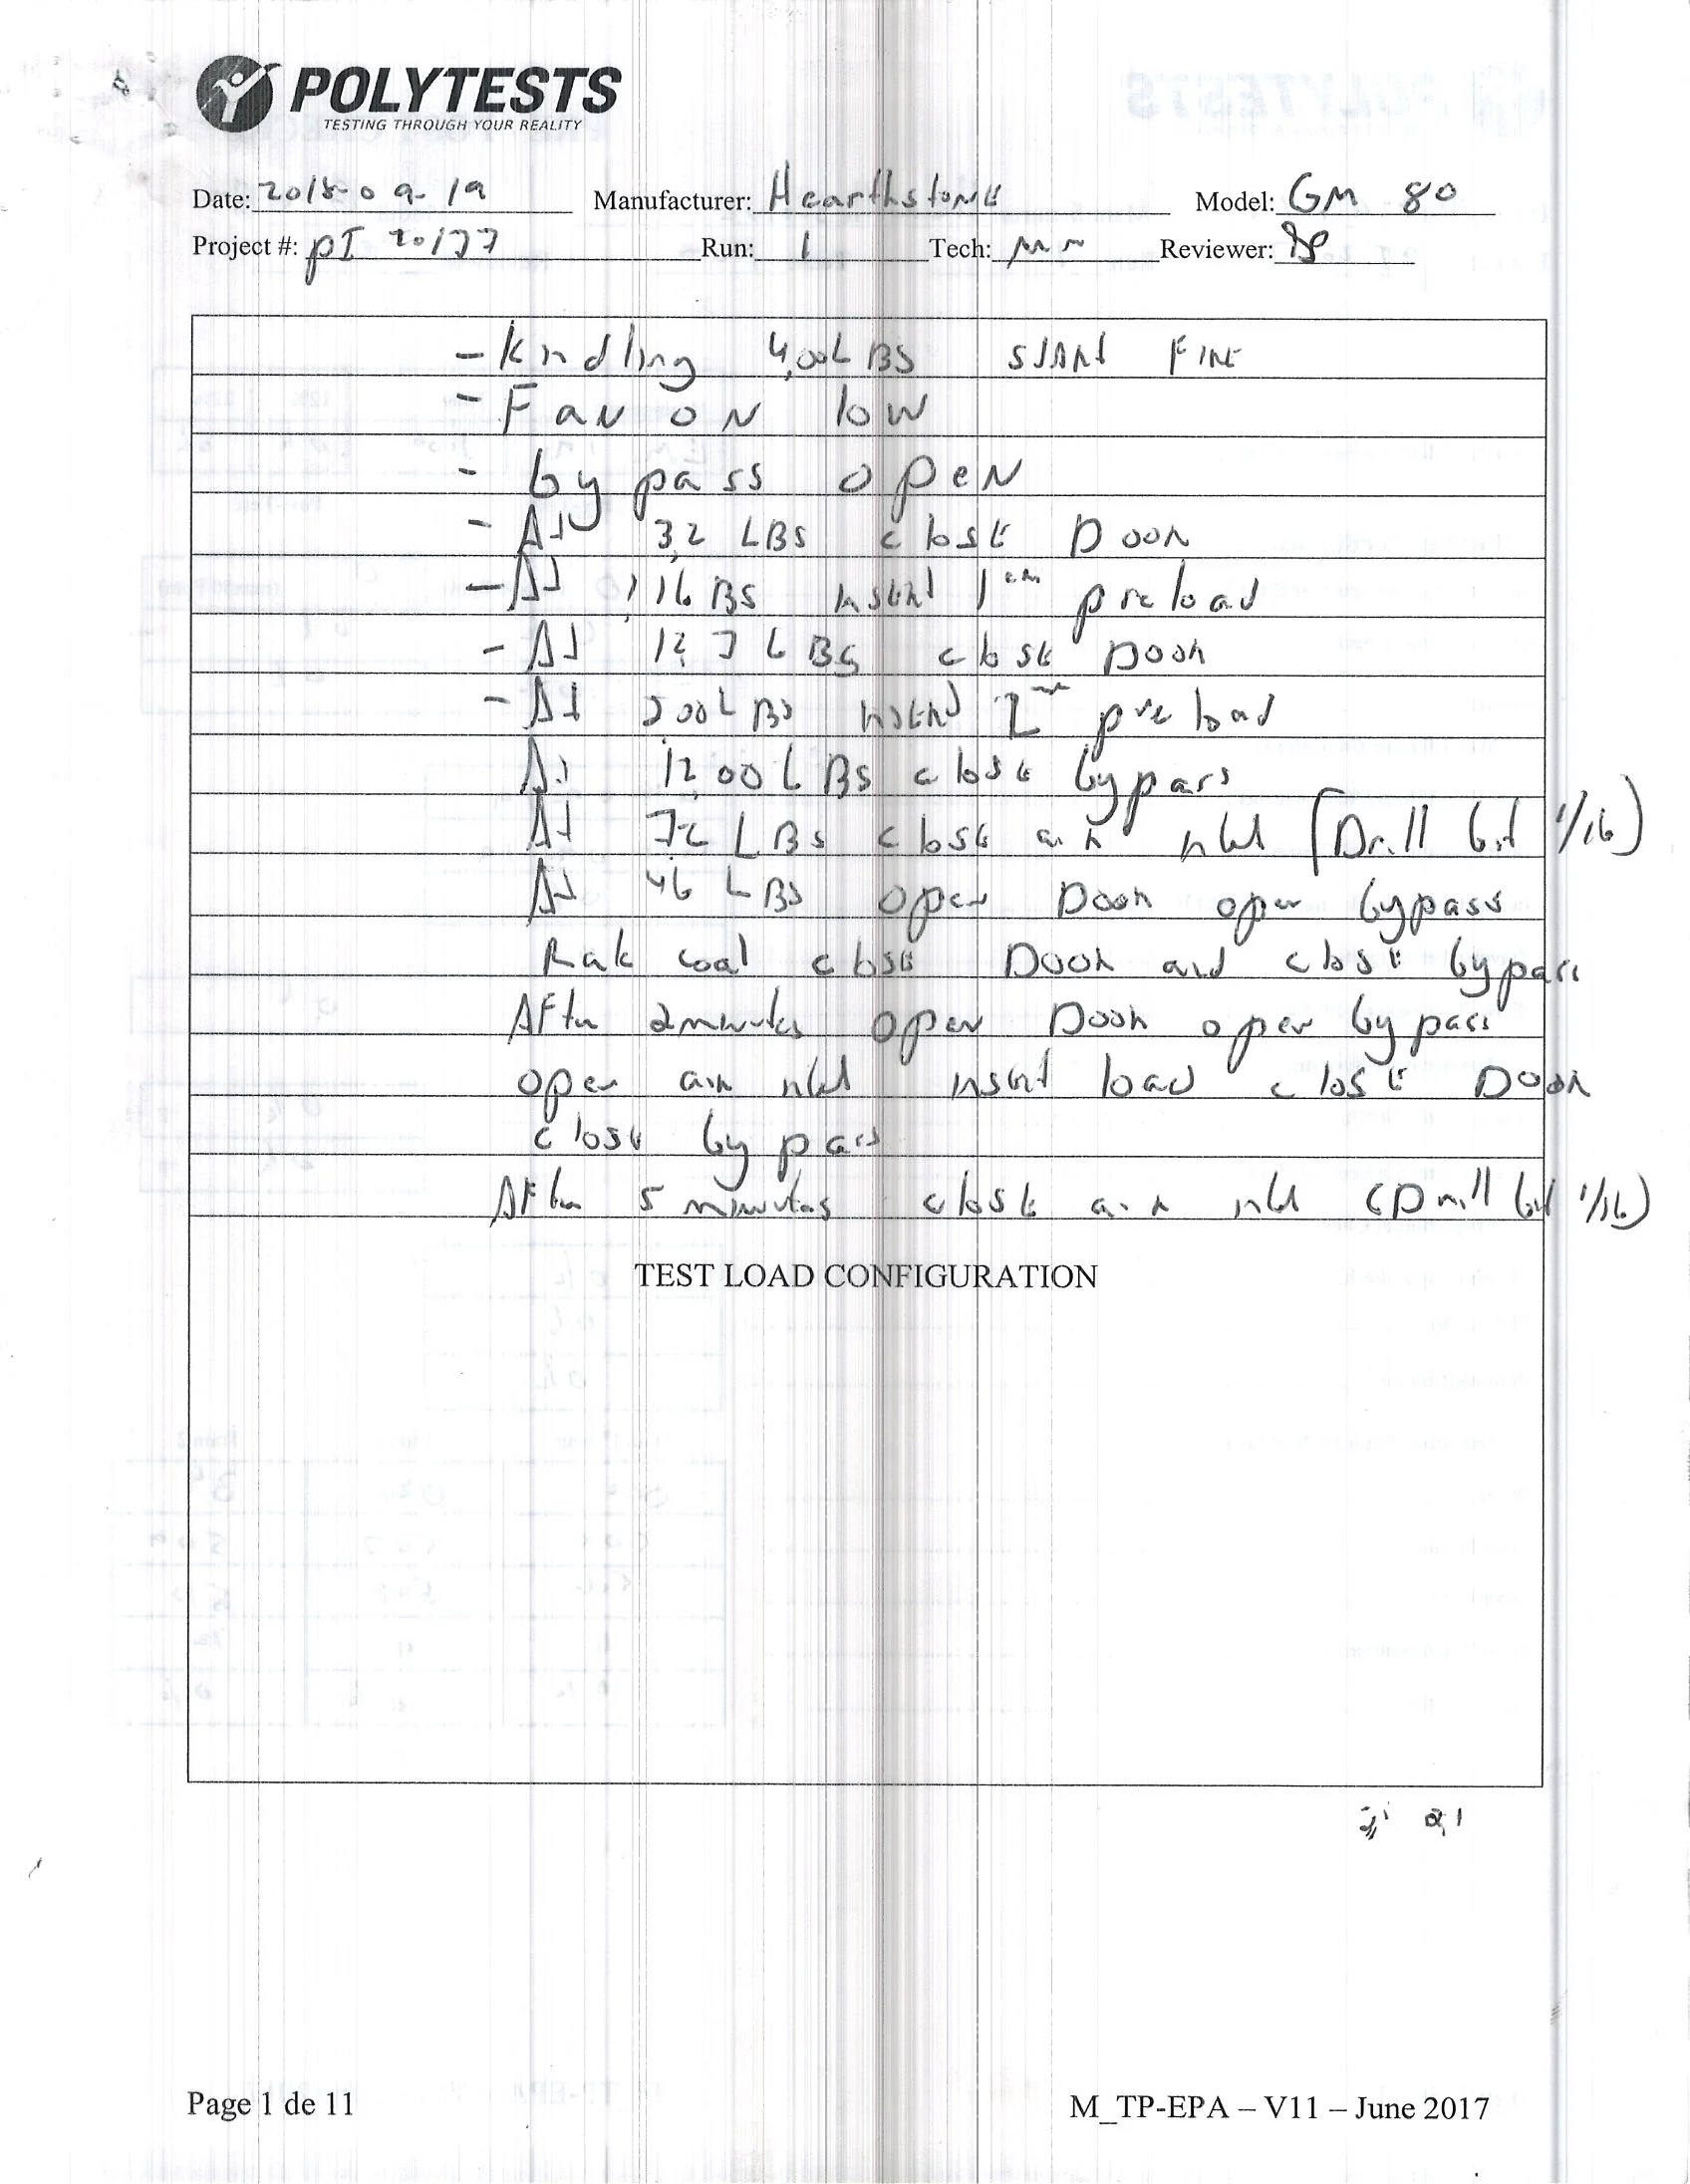 POLYTESTS
TESTING THROUGH YOUR REALITY
Date: 2018-09-19 Manufacturer: HearthstonE Model: GM 80
Project #: PI 20177 Run: 1 Tech: Reviewer:
- kindling 4,00 LBS START FIRE
- Fan ON low
- by pass open
- AT 3,2 LBS closE Door
- AT 1,1 LBS insert 1er preload
- AT 12,7 LBS closE Door
- AT LBS insert 2 preload
AT 12,00 LBS closE bypass
AT LBS closE air inlet (Drill bit 1/16)
AT LBS open Door open bypass
Rak coal closE Door and closE bypass
AFter 2 minutes open Door open bypass
open air inlet insert load closE Door
closE by pass
AFter 5 minutes closE air inlet (Drill bit 1/16)
TEST LOAD CONFIGURATION
Page 1 de 11
M_TP-EPA – V11 – June 2017